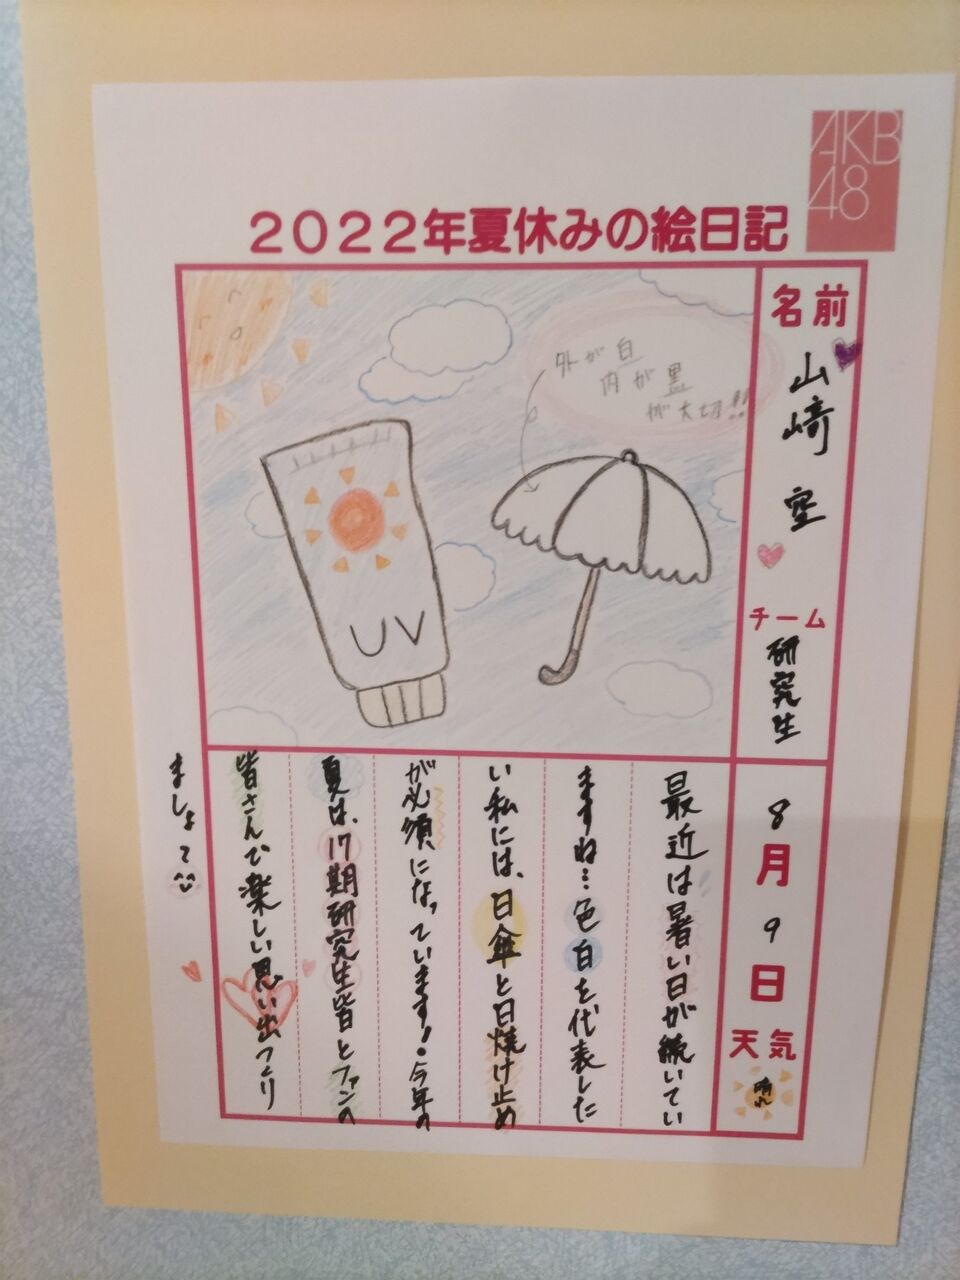 AKB
48
2022年夏休みの絵日記
名前
山崎 空
チーム
研究生
8月9日
天気
晴れ
外が白
内が黒
が大切!!
UV
最近は暑い日が続いてい
ますね…色白を代表した
い私には、日傘と日焼け止め
が必須になっています!今年の
夏は、17期研究生皆とファンの
皆さんで楽しい思い出つくり
ましょて